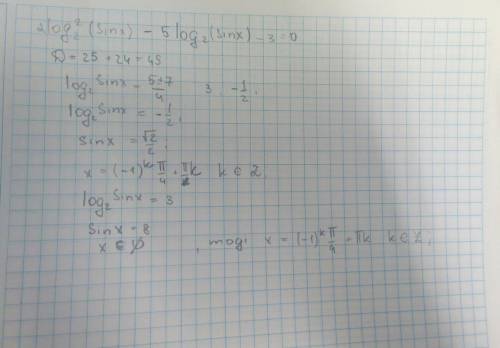 2log₂²(sinx) - 5log₂(sinx) - 3 = 0
D = 25 + 24 = 49
log₂ sinx = (5±7)/4   3 , -1/2 ;
log₂ sinx = -1/2 ;
sinx = √2/2 ;
x = (-1)ᵏ π/4 + πk   k ∈ Z
log₂ sinx = 3
sinx = 8
x ∈ ∅ , тоді x = (-1)ᵏ π/4 + πk   k ∈ Z ;